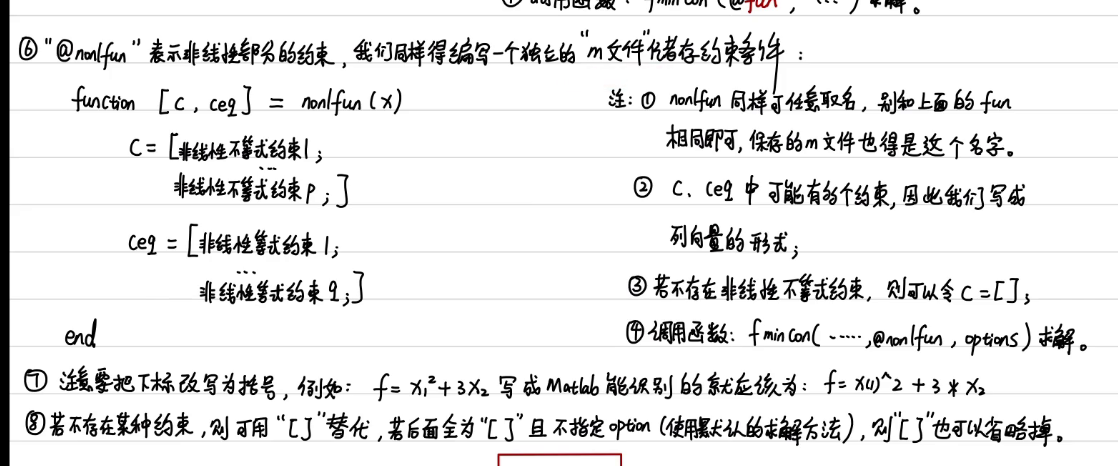 ① 调用函数: fmincon(@fun, ....) 求解。
⑥ "@nonlfun" 表示非线性部分的约束, 我们同样得编写一个独立的"m文件"储存约束条件:
function [c, ceq] = nonlfun(x)
C = [非线性不等式约束1;
...
非线性不等式约束p;]
ceq = [非线性等式约束1;
...
非线性等式约束q;]
end
注: ① nonlfun 同样可任意取名, 别和上面的fun
相同即可, 保存的m文件也得是这个名字。
② C、Ceq 中可能有多个约束, 因此我们写成
列向量的形式;
③ 若不存在非线性不等式约束, 则可以令 C=[];
④ 调用函数: fmincon(·····,@nonlfun, options) 求解。
⑦ 注意要把下标改写为括号, 例如: f = x₁²+3x₂ 写成Matlab能识别的就应该为: f = x(1)^2 + 3 * x₂
⑧ 若不存在某种约束, 则可用 "[]" 替代, 若后面全为 "[]" 且不指定option (使用默认的求解方法), 则"[]"也可以省略掉。